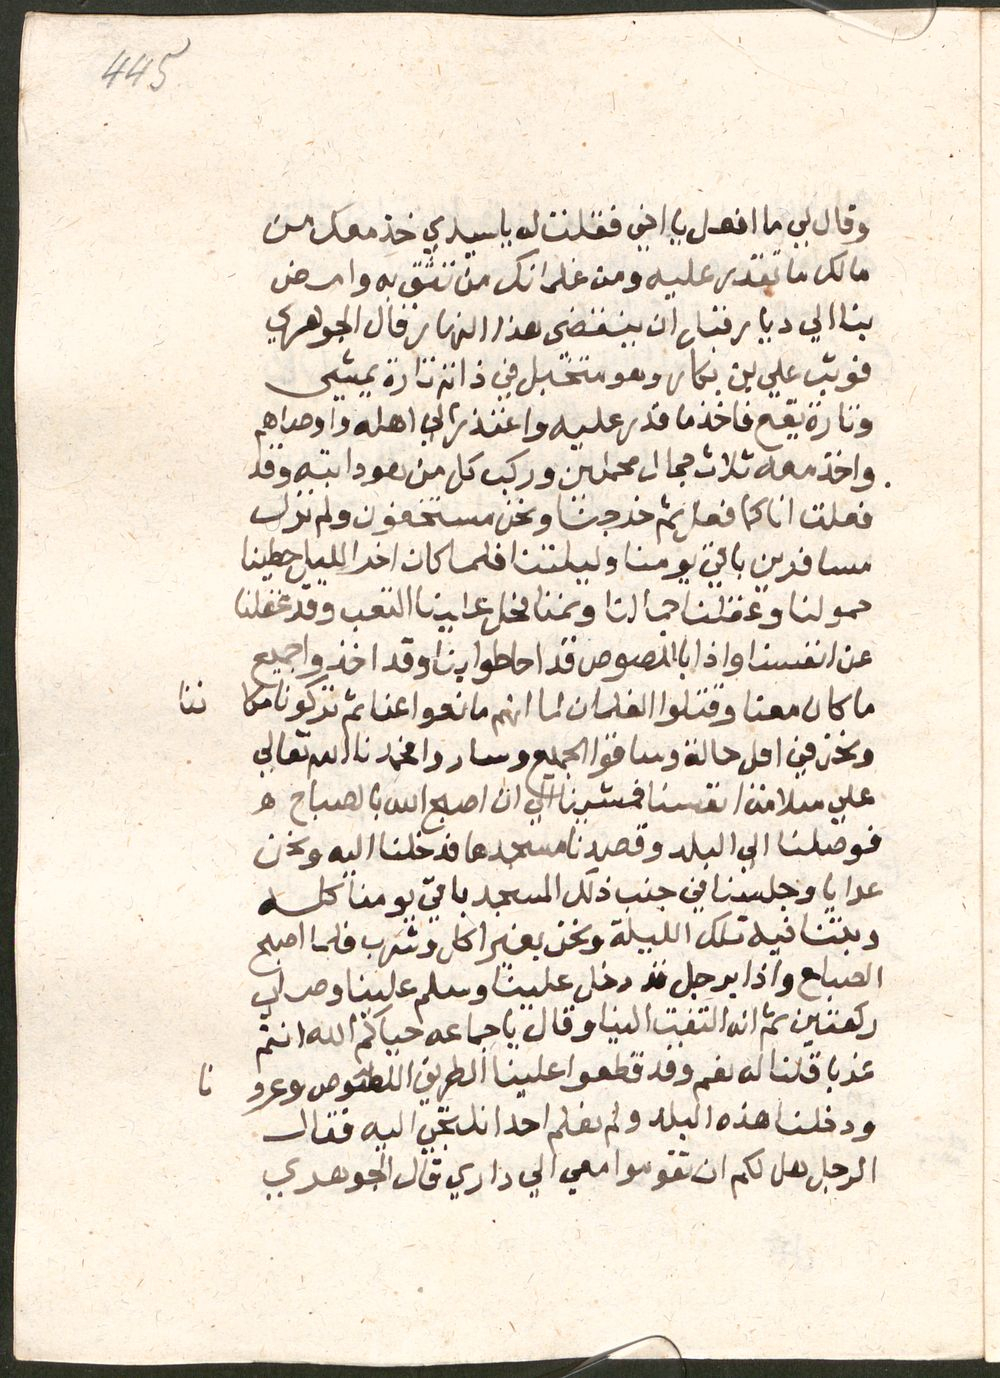 445
وقال لي ما افعل يا اخي فقلت له يا سيدي خذ معك من
مالك ما تقدر عليه ومن غلمانك من تثق به وامض
بنا الي ديار قبل ان ينقضى هذا النهار قال الجوهري
فوثب علي بن بكار وهو متخبل في ذاته تارة يمشى
وتارة يقع فاخذ ما قدر عليه واعتذر الي اهله واوصاهم
واخذ معه ثلاث جمال محملين وركب كل من هو دابته وقد
فعلت انا كما فعل ثم خرجنا ونحن مستخفون ولم نزل
مسافرين باقي يومنا وليلتنا فلما كان اخر الليل حطينا
حمولنا وعقلنا جمالنا ونمنا فحل علينا التعب وقد غفلنا
عن انفسنا واذا باللصوص قد احاطوا بنا وقد اخذوا جميع
ما كان معنا وقتلوا الغلمان لما انهم مانعوا عنا ثم تركونا مكا ننا
ونحن في اقل حالة وساقوا الجميع وساروا فحمدنا الله تعالي
علي سلامة انفسنا فمشينا الي ان اصبح الله بالصباح ه
فوصلنا الي البلد وقصدنا مسجدها فدخلنا اليه ونحن
عرايا وجلسنا في جنب ذلك المسجد باقي يومنا كله
وبتنا فيه تلك الليلة ونحن بغير اكل وشرب فلما اصبح
الصباح واذا برجل قد دخل علينا وسلم علينا وصلى
ركعتين ثم انه التفت الينا وقال يا جماعه حياكم الله انتم
غربا قلنا له نعم وقد قطعوا علينا الطريق اللصوص وعرو نا
ودخلنا هذه البلد ولم نعلم احدا نلتجي اليه فقال
الرجل هل لكم ان تقوموا معي الي داري قال الجوهري